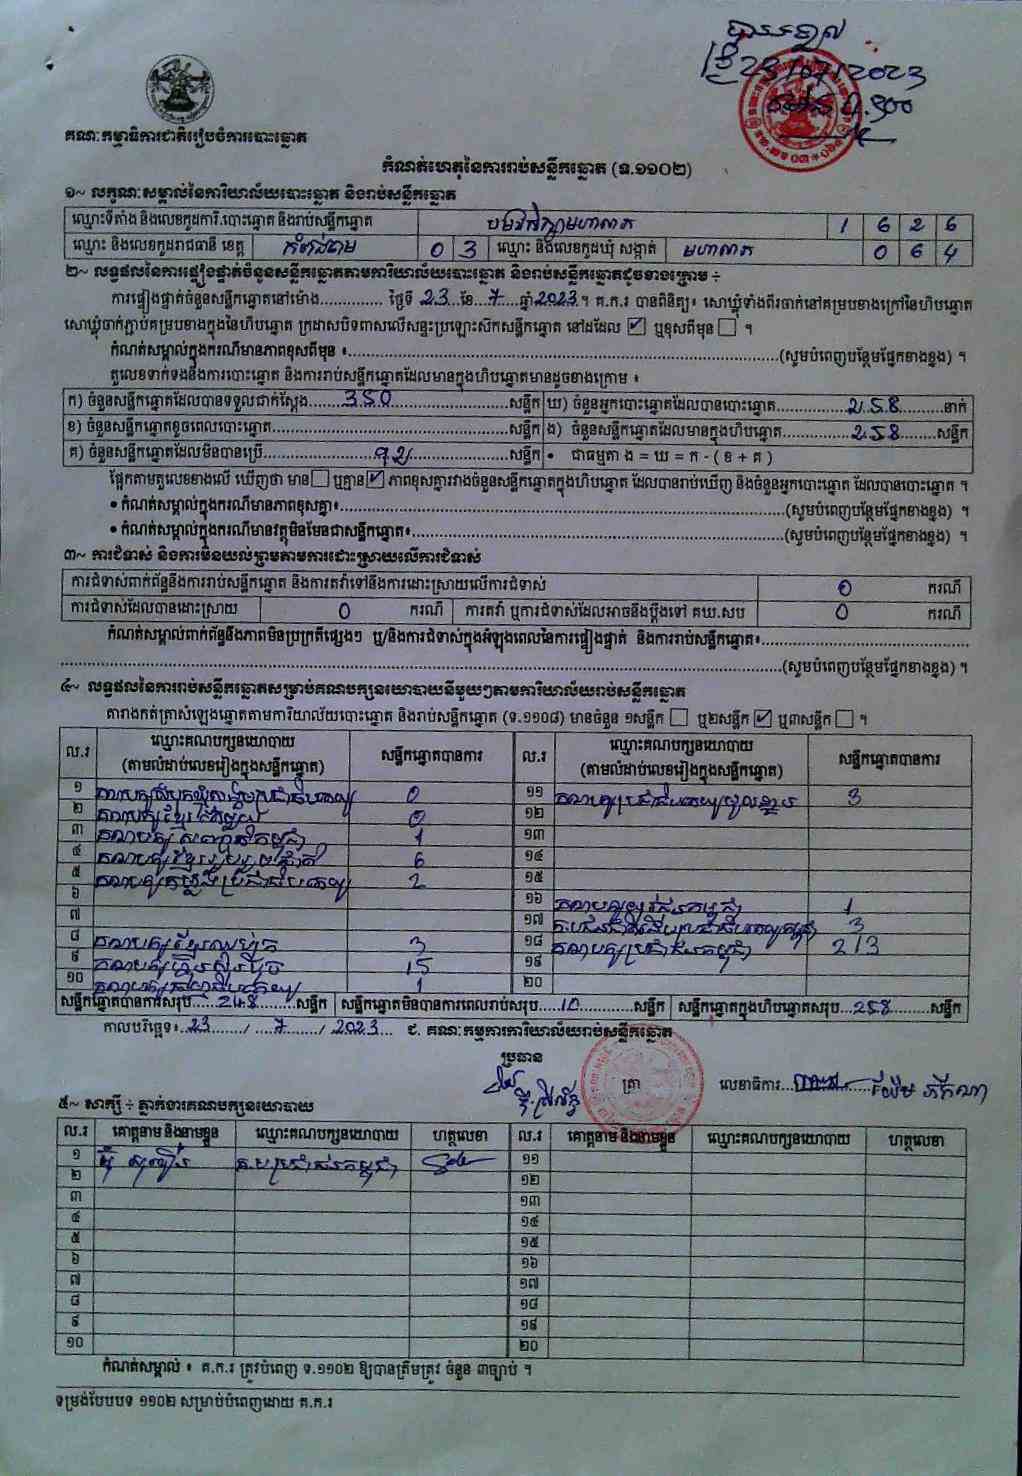 បានទទួល
ថ្ងៃ 23/07/2023
គណៈកម្មាធិការជាតិរៀបចំការបោះឆ្នោត
កំណត់ហេតុនៃការរាប់សន្លឹកឆ្នោត (ទ.១១០២)
១~ លក្ខណៈសម្គាល់នៃការិយាល័យបោះឆ្នោត និងរាប់សន្លឹកឆ្នោត
ឈ្មោះទីតាំង និងលេខកូដការិ.បោះឆ្នោត និងរាប់សន្លឹកឆ្នោត 1 6 2 6
ឈ្មោះ និងលេខកូដរាជធានី ខេត្ត កំពង់ចាម 0 3 ឈ្មោះ និងលេខកូដឃុំ សង្កាត់ មហាលាភ 0 6 4
២~ លទ្ធផលនៃការផ្ទៀងផ្ទាត់ចំនួនសន្លឹកឆ្នោតតាមការិយាល័យបោះឆ្នោត និងរាប់សន្លឹកឆ្នោតដូចខាងក្រោម ÷
ការផ្ទៀងផ្ទាត់ចំនួនសន្លឹកឆ្នោតនៅម៉ោង.............. ថ្ងៃទី 23 ខែ 7 ឆ្នាំ 2023 ។ គ.ក.រ បានពិនិត្យ៖ សោឃ្លុំទាំងពីរចាក់នៅគម្របខាងក្រៅនៃហិបឆ្នោត
សោឃ្លុំចាក់ភ្ជាប់គម្របខាងក្នុងនៃហិបឆ្នោត ក្រដាសបិទពាសលើសន្ទះប្រឡោះសៀកសន្លឹកឆ្នោត នៅដដែល ☑ ឬខុសពីមុន ☐ ។
កំណត់សម្គាល់ក្នុងករណីមានភាពខុសពីមុន ៖..............(សូមបំពេញបន្ថែមផ្នែកខាងខ្នង) ។
តួលេខទាក់ទងនឹងការបោះឆ្នោត និងការរាប់សន្លឹកឆ្នោតដែលមានក្នុងហិបឆ្នោតមានដូចខាងក្រោម ៖
ក) ចំនួនសន្លឹកឆ្នោតដែលបានទទួលជាក់ស្តែង 350 សន្លឹក ឃ) ចំនួនអ្នកបោះឆ្នោតដែលបានបោះឆ្នោត 258 នាក់
ខ) ចំនួនសន្លឹកឆ្នោតខូចពេលបោះឆ្នោត..............សន្លឹក ង) ចំនួនសន្លឹកឆ្នោតដែលមានក្នុងហិបឆ្នោត 258 សន្លឹក
គ) ចំនួនសន្លឹកឆ្នោតដែលមិនបានប្រើ ៩២ សន្លឹក • ជាធម្មតា ង = ឃ = ក - ( ខ + គ )
ផ្អែកតាមតួលេខខាងលើ ឃើញថា មាន ☐ ឬគ្មាន ☑ ភាពខុសគ្នារវាងចំនួនសន្លឹកឆ្នោតក្នុងហិបឆ្នោត ដែលបានរាប់ឃើញ និងចំនួនអ្នកបោះឆ្នោត ដែលបានបោះឆ្នោត ។
• កំណត់សម្គាល់ក្នុងករណីមានភាពខុសគ្នា៖..............(សូមបំពេញបន្ថែមផ្នែកខាងខ្នង) ។
• កំណត់សម្គាល់ក្នុងករណីមានវត្ថុមិនមែនជាសន្លឹកឆ្នោត៖..............(សូមបំពេញបន្ថែមផ្នែកខាងខ្នង) ។
៣~ ការជំទាស់ និងការមិនយល់ព្រមតាមការដោះស្រាយលើការជំទាស់
ការជំទាស់ពាក់ព័ន្ធនឹងការរាប់សន្លឹកឆ្នោត និងការតវ៉ាទៅនឹងការដោះស្រាយលើការជំទាស់ 0 ករណី
ការជំទាស់ដែលបានដោះស្រាយ 0 ករណី ការតវ៉ា ឬការជំទាស់ដែលអាចនឹងប្តឹងទៅ គឃ.សប 0 ករណី
កំណត់សម្គាល់ពាក់ព័ន្ធនឹងភាពមិនប្រក្រតីផ្សេងៗ ឬ/និងការជំទាស់ក្នុងអំឡុងពេលនៃការផ្ទៀងផ្ទាត់ និងការរាប់សន្លឹកឆ្នោត៖..............
..............(សូមបំពេញបន្ថែមផ្នែកខាងខ្នង) ។
៤~ លទ្ធផលនៃការរាប់សន្លឹកឆ្នោតសម្រាប់គណបក្សនយោបាយនីមួយៗតាមការិយាល័យរាប់សន្លឹកឆ្នោត
តារាងកត់ត្រាសំឡេងឆ្នោតតាមការិយាល័យបោះឆ្នោត និងរាប់សន្លឹកឆ្នោត (ទ.១១០៨) មានចំនួន ១សន្លឹក ☐ ឬ២សន្លឹក ☑ ឬ៣សន្លឹក ☐ ។
ល.រ ឈ្មោះគណបក្សនយោបាយ (តាមលំដាប់លេខរៀងក្នុងសន្លឹកឆ្នោត) សន្លឹកឆ្នោតបានការ ល.រ ឈ្មោះគណបក្សនយោបាយ (តាមលំដាប់លេខរៀងក្នុងសន្លឹកឆ្នោត) សន្លឹកឆ្នោតបានការ
១ 0 ១១ គណបក្សប្រជាធិបតេយ្យមូលដ្ឋាន 3
២ 0 ១២
៣ 1 ១៣
៤ គណបក្សខ្មែររួបរួមជាតិ 6 ១៤
៥ គណបក្សកម្លាំងប្រជាធិបតេយ្យ 2 ១៥
៦ ១៦ គណបក្សយុវជនកម្ពុជា 1
៧ ១៧ 3
៨ 3 ១៨ គណបក្សប្រជាជនកម្ពុជា 213
៩ គណបក្សហ្វ៊ុនស៊ិនប៉ិច 15 ១៩
១០ 1 ២០
សន្លឹកឆ្នោតបានការសរុប 248 សន្លឹក សន្លឹកឆ្នោតមិនបានការពេលរាប់សរុប 10 សន្លឹក សន្លឹកឆ្នោតក្នុងហិបឆ្នោតសរុប 258 សន្លឹក
កាលបរិច្ឆេទ៖ 23 / 7 / 2023 ជ. គណៈកម្មការការិយាល័យរាប់សន្លឹកឆ្នោត
ប្រធាន
ត្រា លេខាធិការ
៥~ សាក្សី ÷ ភ្នាក់ងារគណបក្សនយោបាយ
ល.រ គោត្តនាម និងនាមខ្លួន ឈ្មោះគណបក្សនយោបាយ ហត្ថលេខា ល.រ គោត្តនាម និងនាមខ្លួន ឈ្មោះគណបក្សនយោបាយ ហត្ថលេខា
១ គ.ប ប្រជាជនកម្ពុជា ១១
២ ១២
៣ ១៣
៤ ១៤
៥ ១៥
៦ ១៦
៧ ១៧
៨ ១៨
៩ ១៩
១០ ២០
កំណត់សម្គាល់ ៖ គ.ក.រ ត្រូវបំពេញ ទ.១១០២ ឱ្យបានត្រឹមត្រូវ ចំនួន ៣ច្បាប់ ។
ទម្រង់បែបបទ ១១០២ សម្រាប់បំពេញដោយ គ.ក.រ